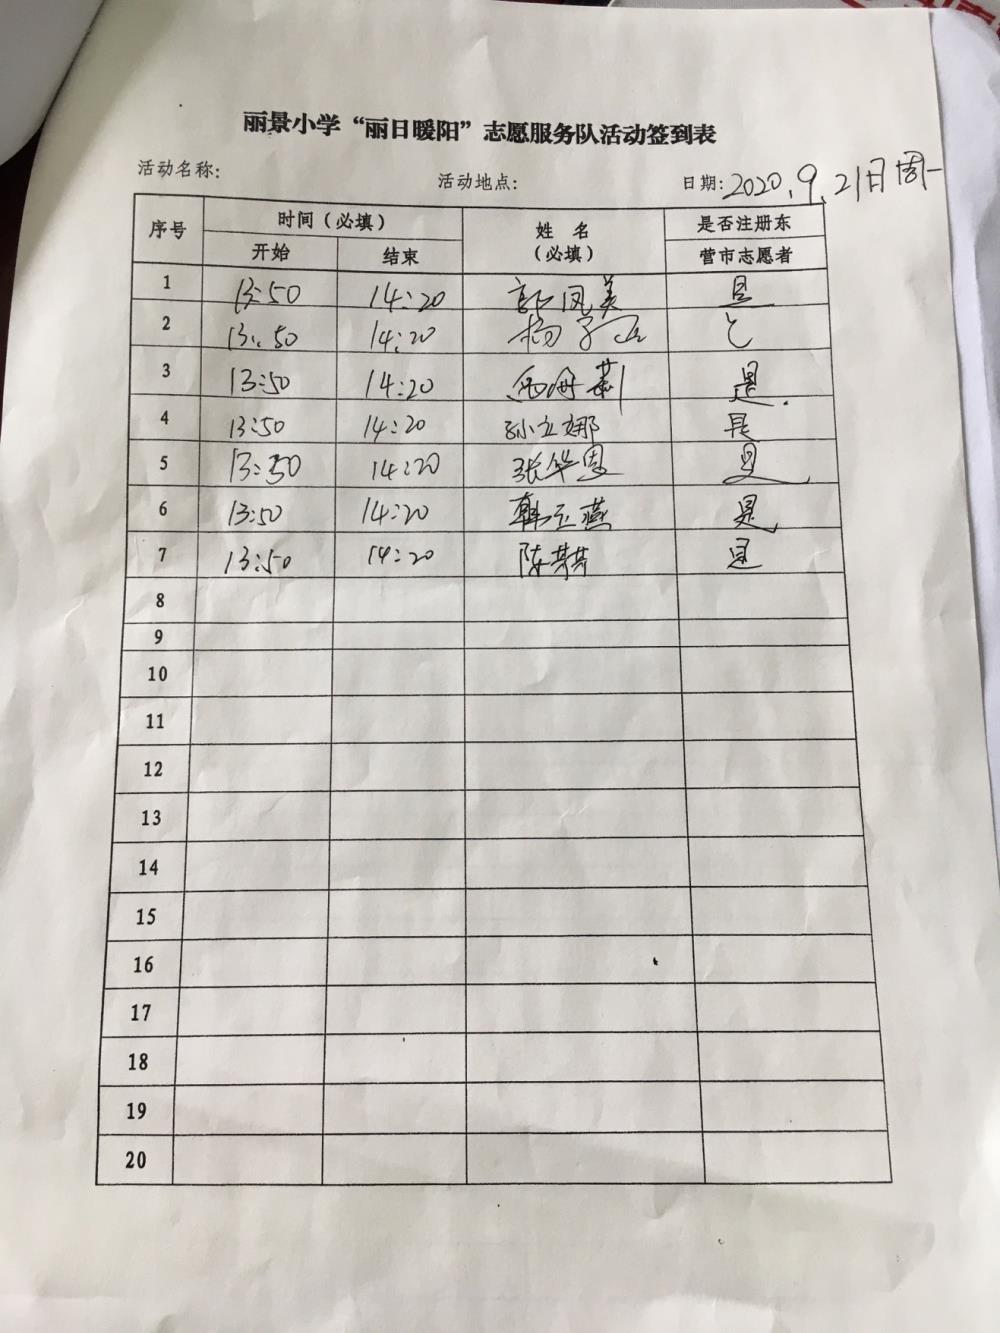 丽景小学“丽日暖阳”志愿服务队活动签到表
活动名称: 活动地点: 日期: 2020.9.21日周一
序号 时间（必填） 姓 名 （必填） 是否注册东营市志愿者
开始 结束
1 13:50 14:20 郭凤美 是
2 13:50 14:20 杨子
3 13:50 14:20 是.
4 13:50 14:20 孙立娜 是
5 13:50 14:20 张华恩 是
6 13:50 14:20 韩玉燕 是
7 13:50 14:20 陈 是
8
9
10
11
12
13
14
15
16
17
18
19
20